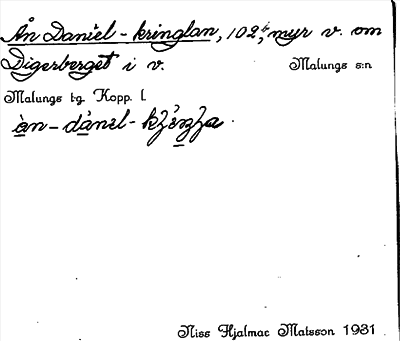 Ån Daniel-kringlan, 102, myr v. om
Digerberget i v. Malungs s:n
Malungs tg. Kopp. l.
Niss Hjalmar Matsson 1931